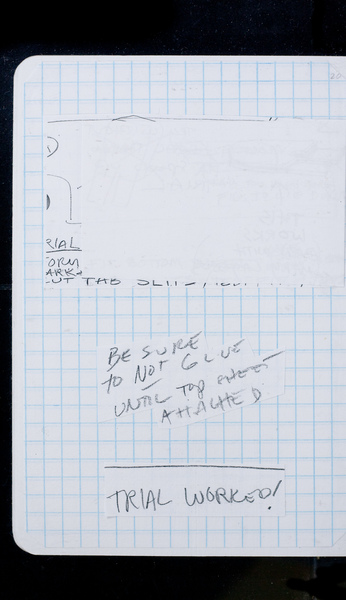 RIAL
ORM
ARK
UT THE
BE SURE
TO NOT GLUE
UNTIL TOP SHEET
ATTACHED
TRIAL WORKED!